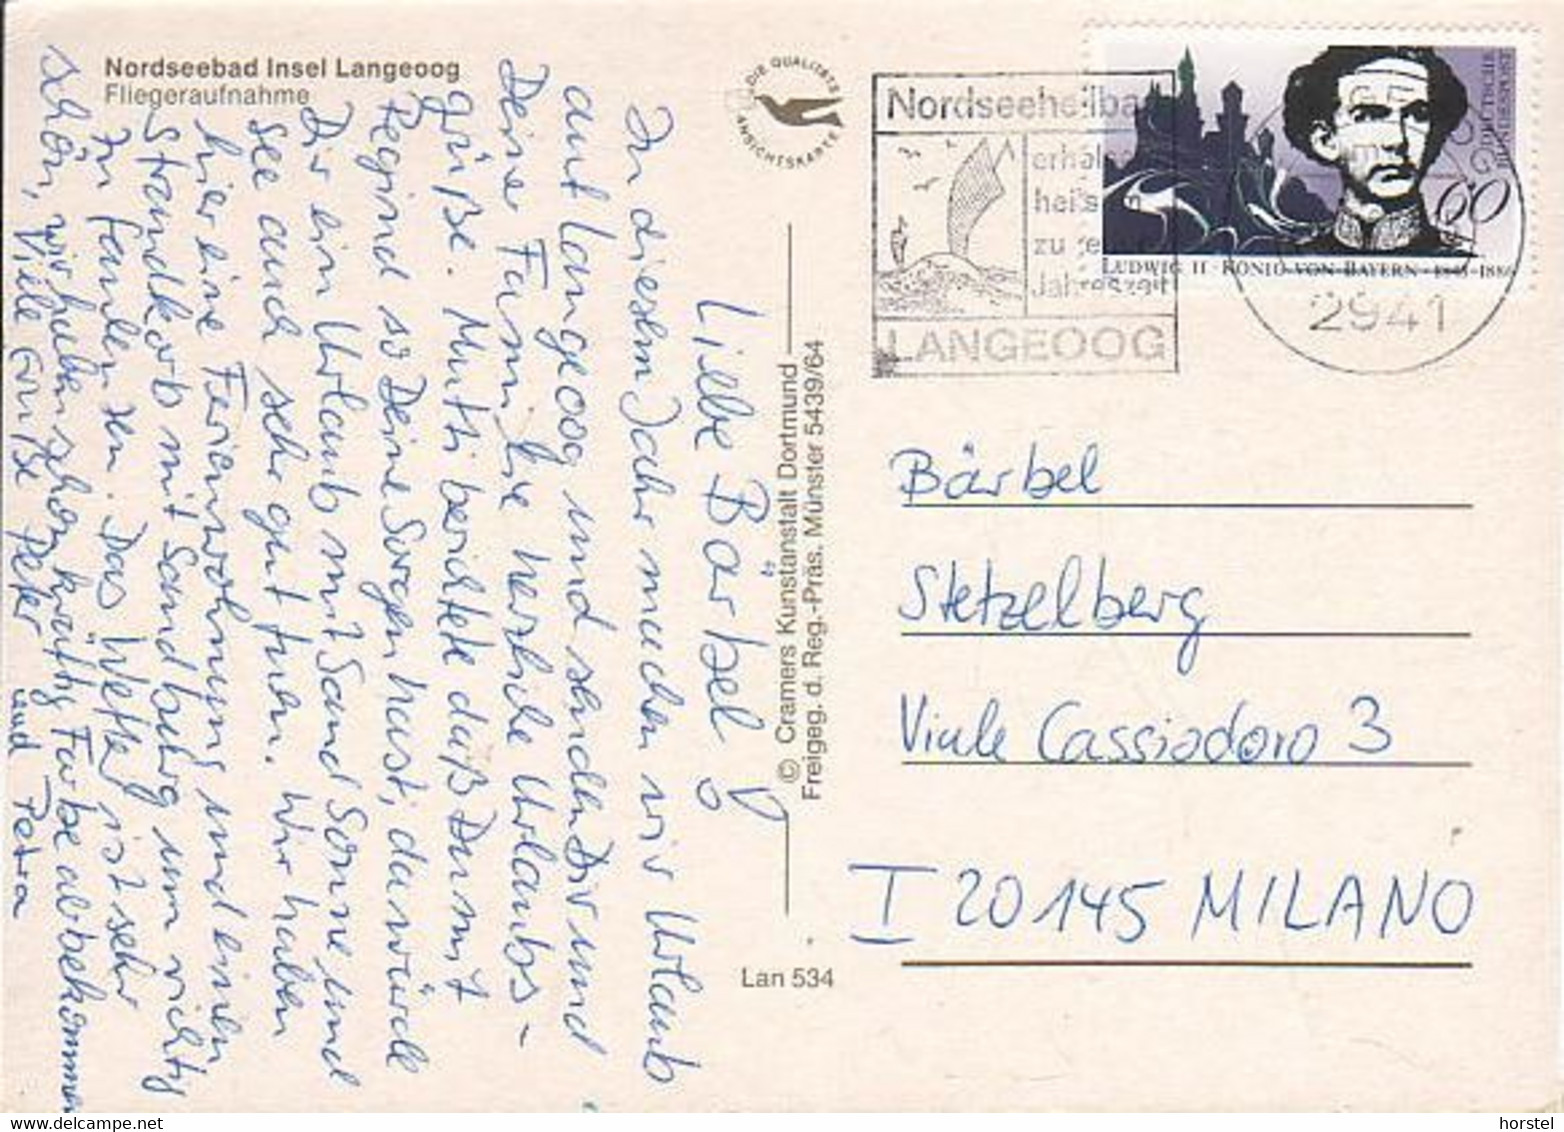 Nordseebad Insel Langeoog
Fliegeraufnahme
DIE QUALITÄTS
ANSICHTSKARTE
Liebe Bärbel!
In diesem Jahr machen wir Urlaub
auf Langeoog und senden Dir und
Deiner Familie herzliche Urlaubs-
grüße. Mutti berichtete daß Du mit
so Deine Sorgen hast, da würde
Dir ein Urlaub mit Sand Sonne und
See auch sehr gut tuen. Wir haben
hier eine Ferienwohnung und einen
Strandkorb mit Sandburg um richtig
zu faulenzen. Das Wetter ist sehr
schön, wir haben schon kräftig Farbe abbekommen
Viele Grüße Peter und Petra
© Cramers Kunstanstalt Dortmund
Freigeg. d. Reg.-Präs. Münster 5439/64
Lan 534
Nordseeheilba
erhol
heils
zu je
Jahreszeit
LANGEOOG
DEUTSCHE
BUNDESPOST
60
LUDWIG II · KÖNIG VON BAYERN · 1845-1886
2941
Bärbel
Stetzelberg
Viale Cassiodoro 3
I 20145 MILANO
horstel